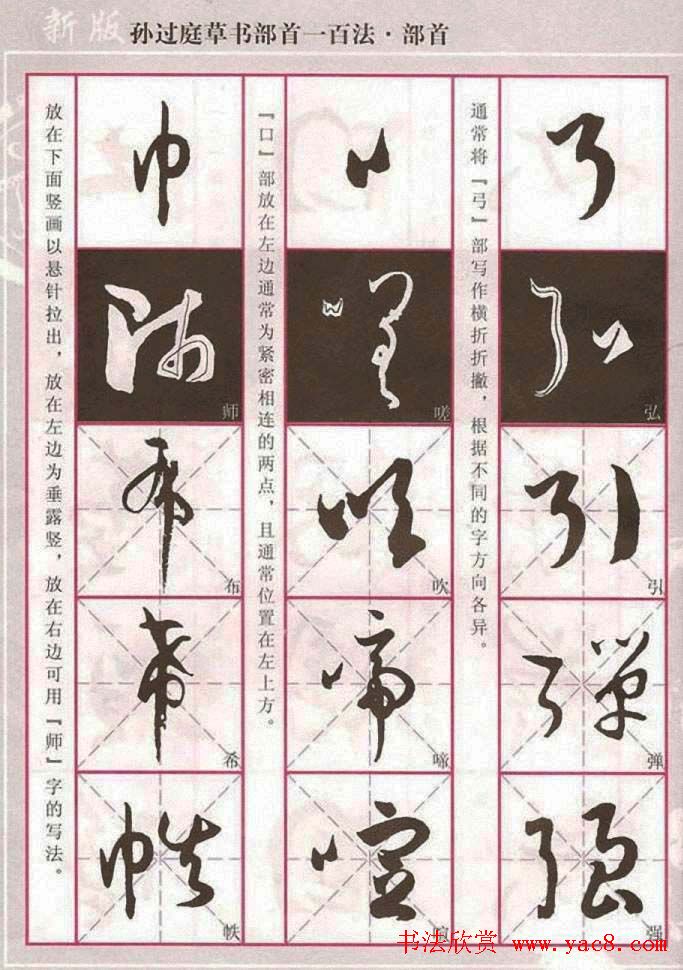 新版 孙过庭草书部首一百法·部首
弓
弘
弘
引
引
弹
弹
强
强
通常将『弓』部写作横折折撇，根据不同的字方向各异。
口
嗟
嗟
吹
吹
啼
啼
喧
『口』部放在左边通常为紧密相连的两点，且通常位置在左上方。
巾
师
师
布
布
希
希
帙
帙
放在下面竖画以悬针拉出，放在左边为垂露竖，放在右边可用『师』字的写法。
书法欣赏 www.yac8.com